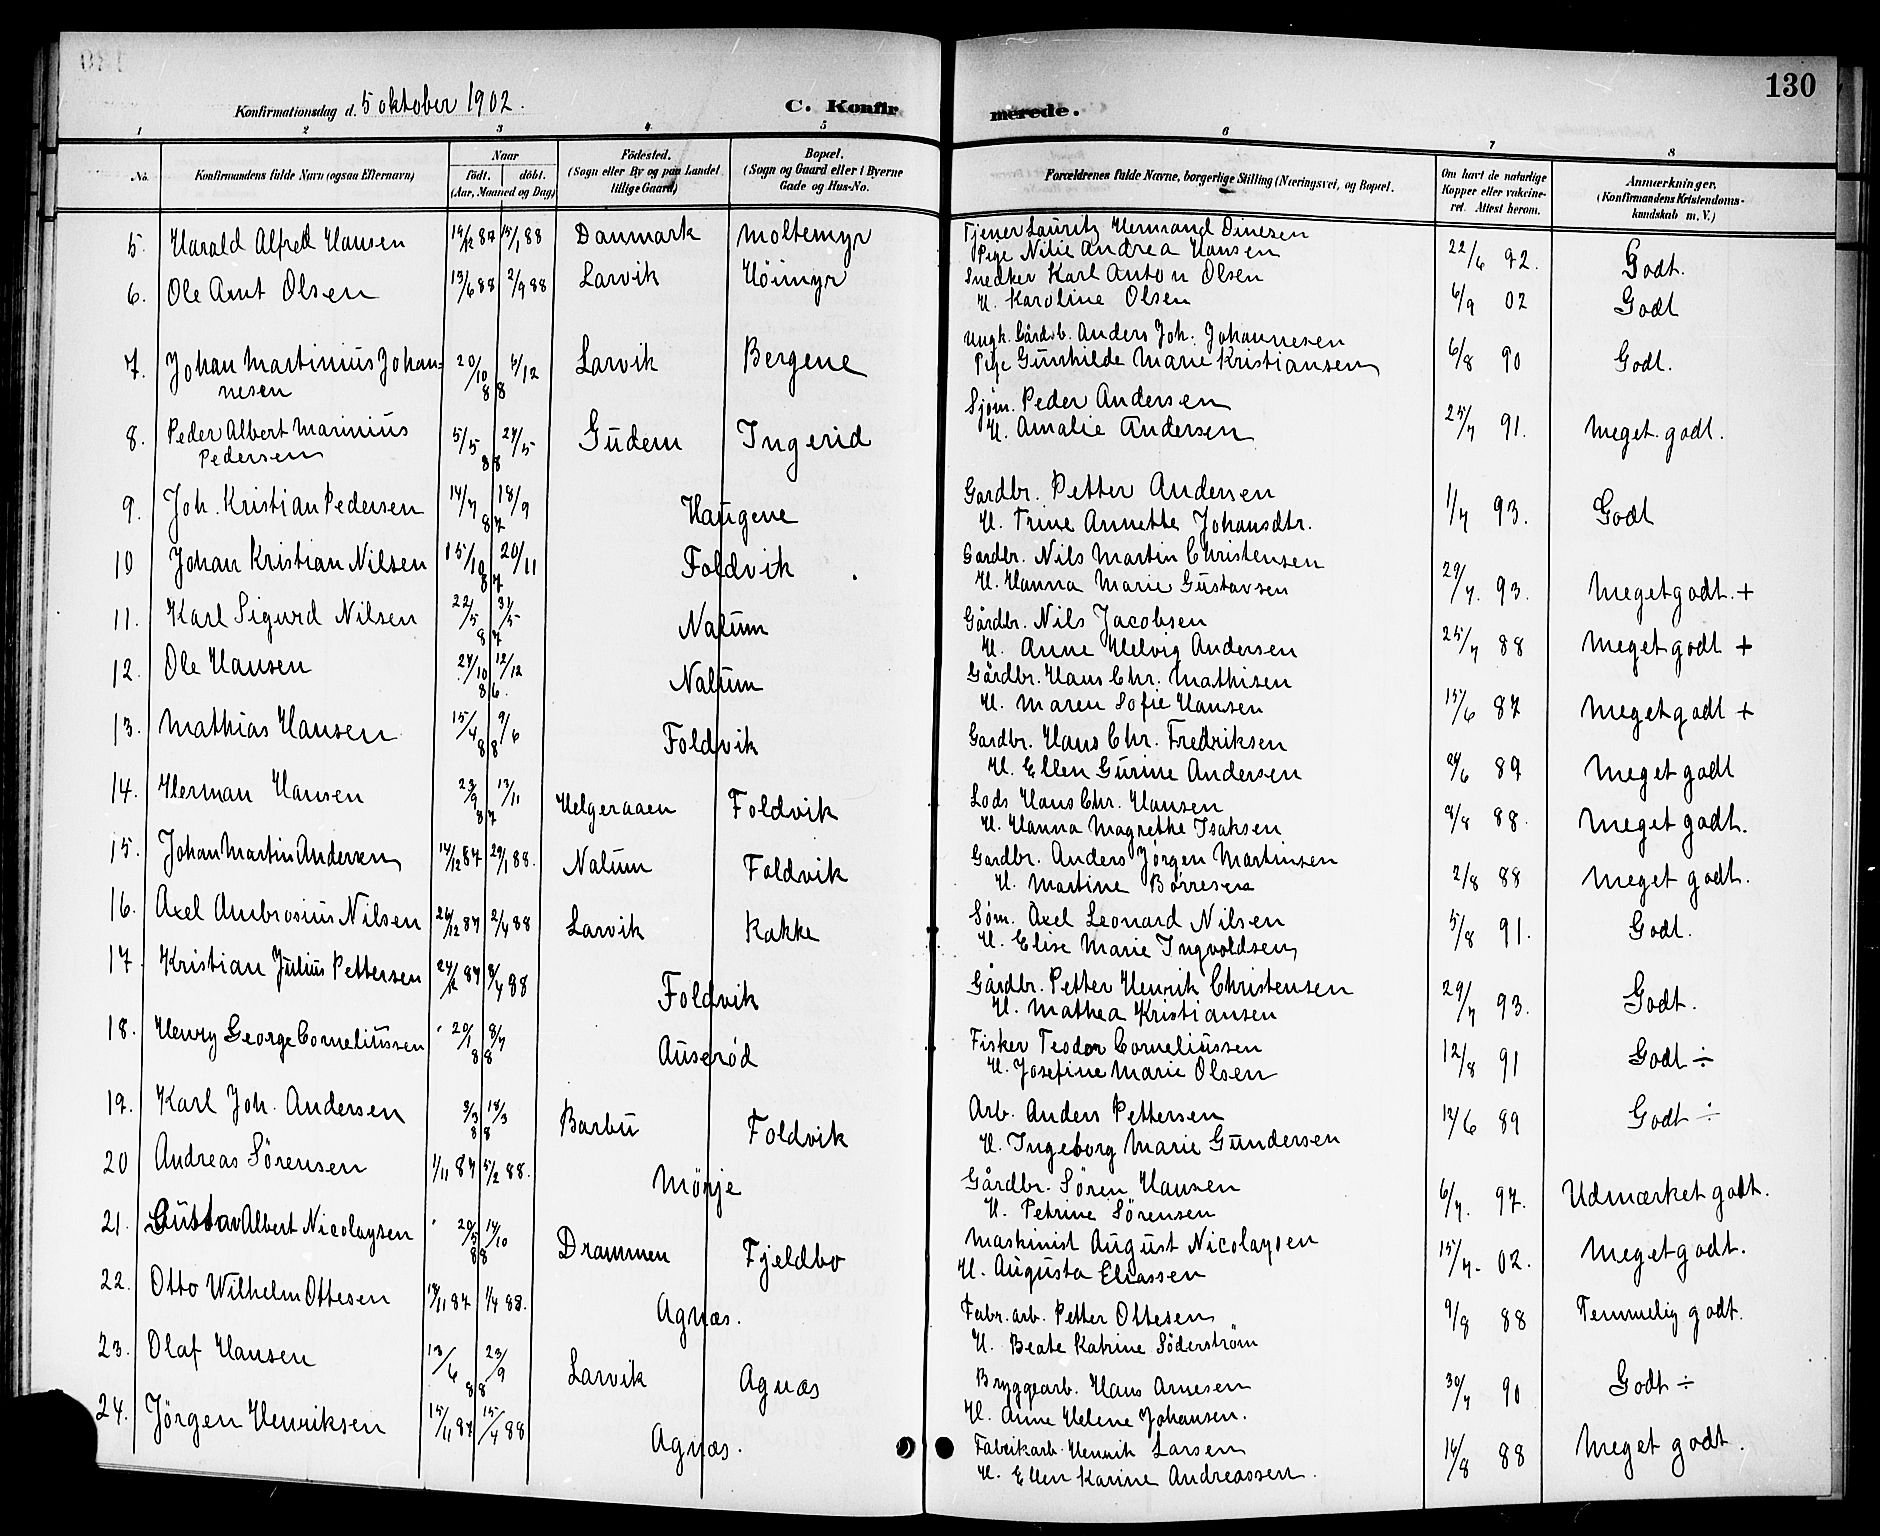 130
Konfirmationsdag d. 5 oktober 1902.
C. Konfirmerede.
1 2 3 4 5 6 7 8
No. Konfirmandens fulde Navn (ogsaa Efternavn) Naar födt. döbt. (Aar, Maaned og Dag) Födested. (Sogn eller By og paa Landet tillige Gaard) Bopæl. (Sogn og Gaard eller i Byerne Gade og Hus-No. Forældrenes fulde Navne, borgerlige Stilling (Næringsvei, og Bopæl. Om havt de naturlige Kopper eller vakcineret. Attest herom. Anmærkninger. (Konfirmandens Kristendomskundskab m. V.)
5. Harald Alfred Hansen 14/12 87 15/1 88 Danmark Moltemyr Tjener Lauritz Hermand Dinesen
Pige Nilie Andrea Hansen 22/6 92. Godt.
6. Ole Amt Olsen 13/6 88 2/9 88 Larvik Höimyr Snedker Karl Anton Olsen
H. Karoline Olsen 6/9 02 Godt
7. Johan Martinius Johannesen 20/10 4/12 88 Larvik Bergene Ungk. Gårdsb. Anders Joh. Johannesen
Pige Gunhilde Marie Kristiansen 6/8 90 Godt.
8. Peder Albert Marinius Pedersen 5/5 27/5 88 Gudem Ingerid Sjöm. Peder Andersen
H. Amalie Andersen 25/7 91. Meget godt.
9. Joh. Kristian Pedersen 14/7 18/9 87 Haugene Gardbr. Petter Andersen
H. Trine Annette Johansdtr. 1/7 93. Godt
10 Johan Kristian Nilsen 15/10 20/11 87 Foldvik Gardbr. Nils Martin Christensen
H. Hanna Marie Gustavsen 29/7. 93. Meget godt. +
11. Karl Sigurd Nilsen 22/5 31/5 87 Nalum Gårdbr. Nils Jacobsen
H. Anne Helvig Andersen 25/7 88 Meget godt +
12. Ole Hansen 27/10 12/12 86. Nalum Gårdbr. Hans Chr. Mathisen
H. Maren Sofie Hansen 15/6 87 Meget godt +
13. Mathias Hansen 15/4 9/6 88 Foldvik Gardbr. Hans Chr. Fredriksen
H. Ellen Gurine Andersen 24/6 89 Meget godt
14. Herman Hansen 23/9 13/11 87 Helgeraaen Foldvik Lods Hans Chr. Hansen
H. Hanna Magrethe Isaksen 8/8 88. Meget godt.
15. Johan Martin Andersen 14/12 87 29/1 88. Nalum Foldvik Gardbr. Anders Jörgen Martinsen
H. Martine Börresen 2/8 88 Meget godt.
16. Axel Ambrosius Nilsen 26/12 87 2/4 88 Larvik Kakke Söm. Axel Leonard Nilsen
H. Elise Marie Ingvoldsen 5/8 91. Godt.
17. Kristian Julius Pettersen 24/12 87 8/4 88 Foldvik Gårdbr. Petter Henrik Christensen
H. Mathea Kristiansen 29/7 93. Godt.
18. Henry George Corneliussen 20/1 8/7 88 Auseröd Fisker Teodor Corneliussen
H. Josefine Marie Olsen 12/8 91 Godt ÷
19. Karl Joh. Andersen 3/3 18/3 88 Barbu Foldvik Arb. Anders Pettersen
H. Ingeborg Marie Gundersen 12/6 89 Godt ÷
20 Andreas Sörensen 1/11 87 5/2 88. Mönje Gårdbr. Sören Hansen
H. Petrine Sörensen 6/7. 97. Udmærket godt.
21. Gustav Albert Nicolaysen 20/5 14/10 88 Drammen Fjeldbo Maskinist August Nicolaysen
H. Augusta Eliassen 15/7- 02. Meget godt.
22. Otto Wilhelm Ottesen 18/11 87 1/4 88. Agnæs. Fabr. arb. Petter Ottesen
H. Beate Katrine Söderström 9/8 88 Temmelig godt.
23. Olaf Hansen 13/6 23/9 88 Larvik Agnæs Bryggearb. Hans Arnesen
H. Anne Helene Johansen. 30/7 90 Godt ÷
24. Jörgen Henriksen 15/11 87 15/4 88 Agnæs. Fabrikarb. Henrik Larsen
H. Ellen Karine Andreassen. 14/8 88 Meget godt.